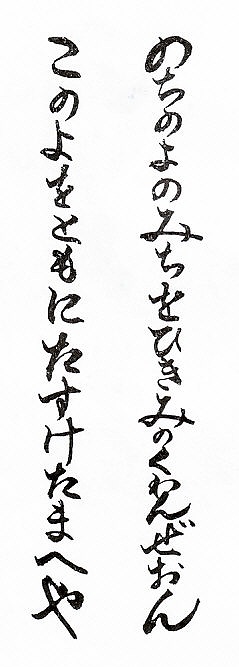 のちのよのみちをひきみのくわんぜおん
このよをともにたすけたまへや